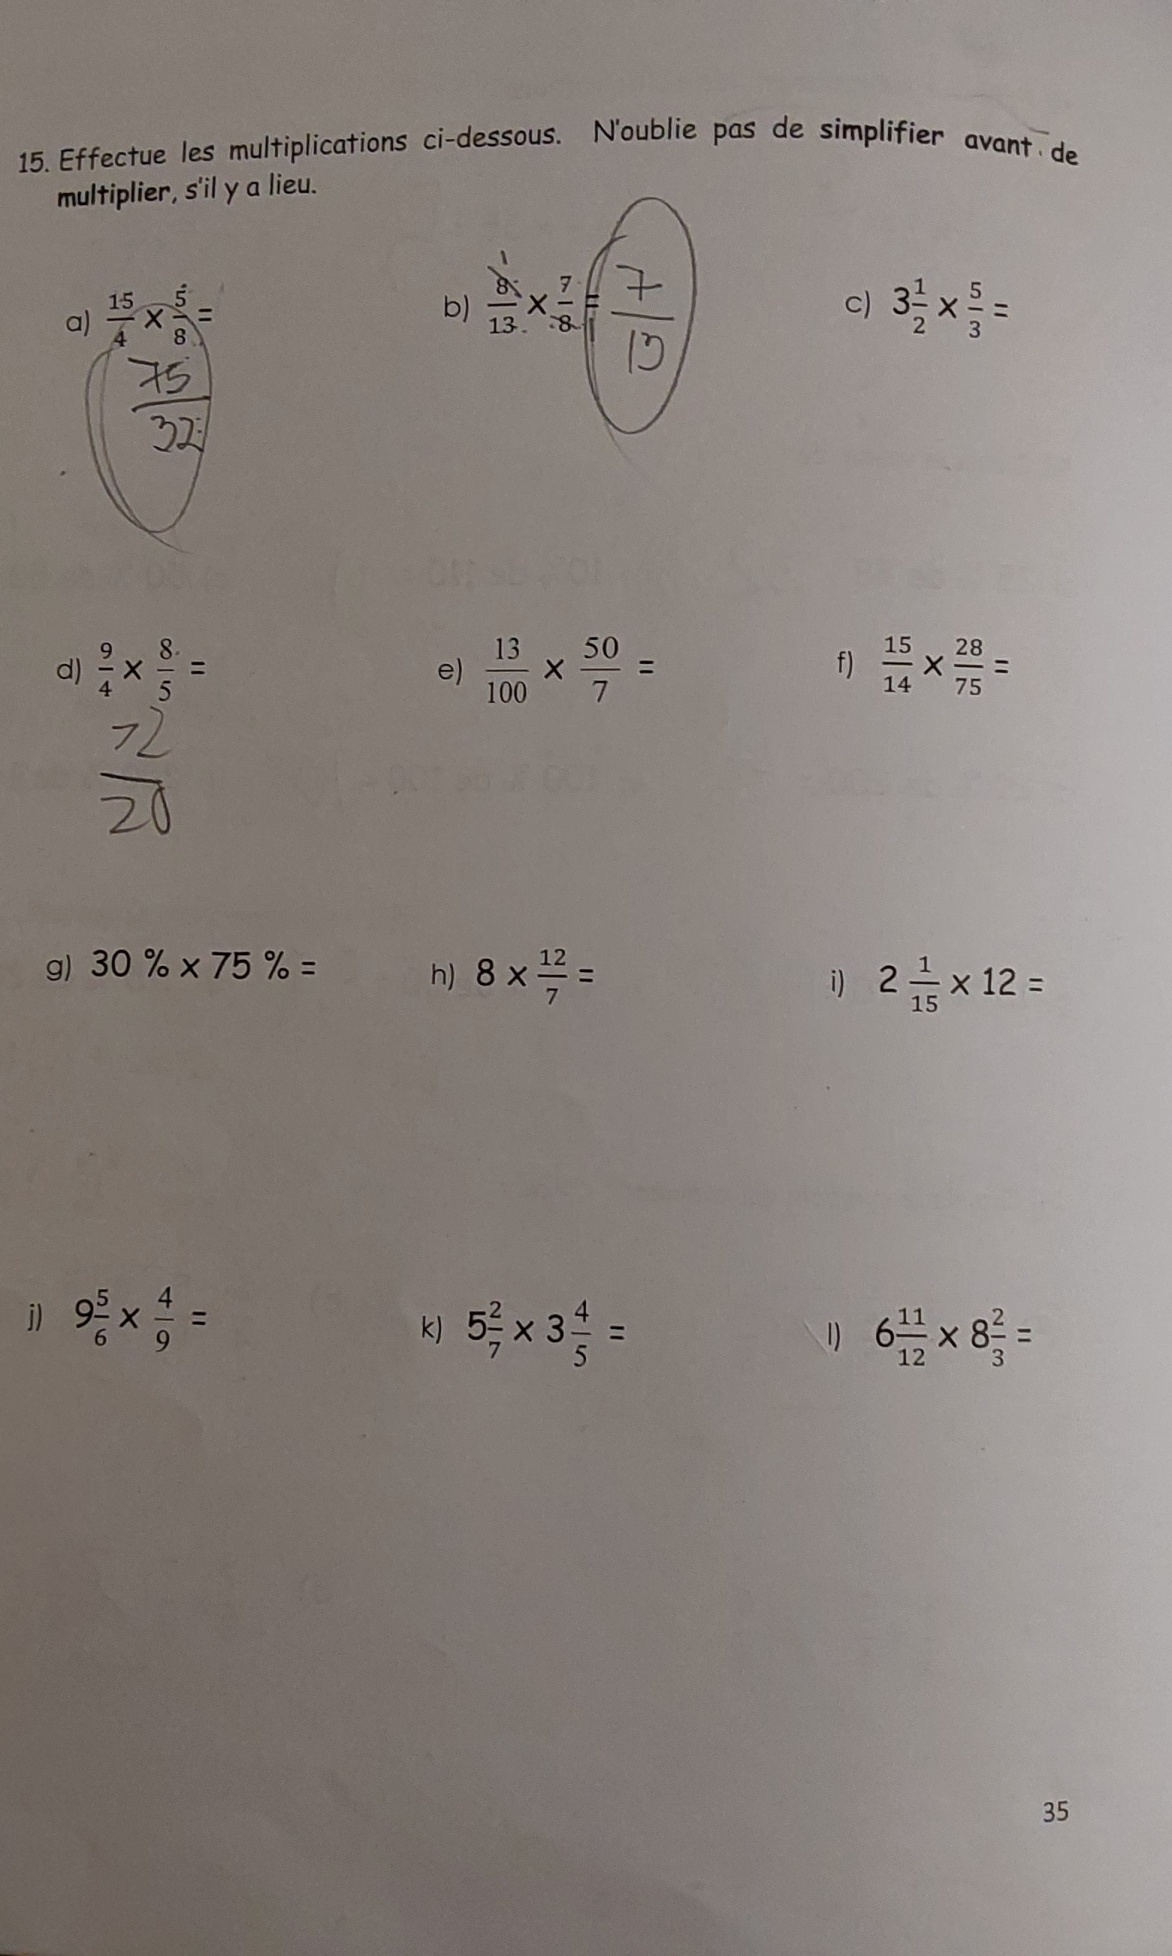 15. Effectue les multiplications ci-dessous. N'oublie pas de simplifier avant de
multiplier, s'il y a lieu.
a) 15/4 x 5/8 =
75/32
b) 8/13 x 7/8 = 7/13
1
1
c) 3 1/2 x 5/3 =
d) 9/4 x 8/5 =
72/20
e) 13/100 x 50/7 =
f) 15/14 x 28/75 =
g) 30 % x 75 % =
h) 8 x 12/7 =
i) 2 1/15 x 12 =
j) 9 5/6 x 4/9 =
k) 5 2/7 x 3 4/5 =
l) 6 11/12 x 8 2/3 =
35